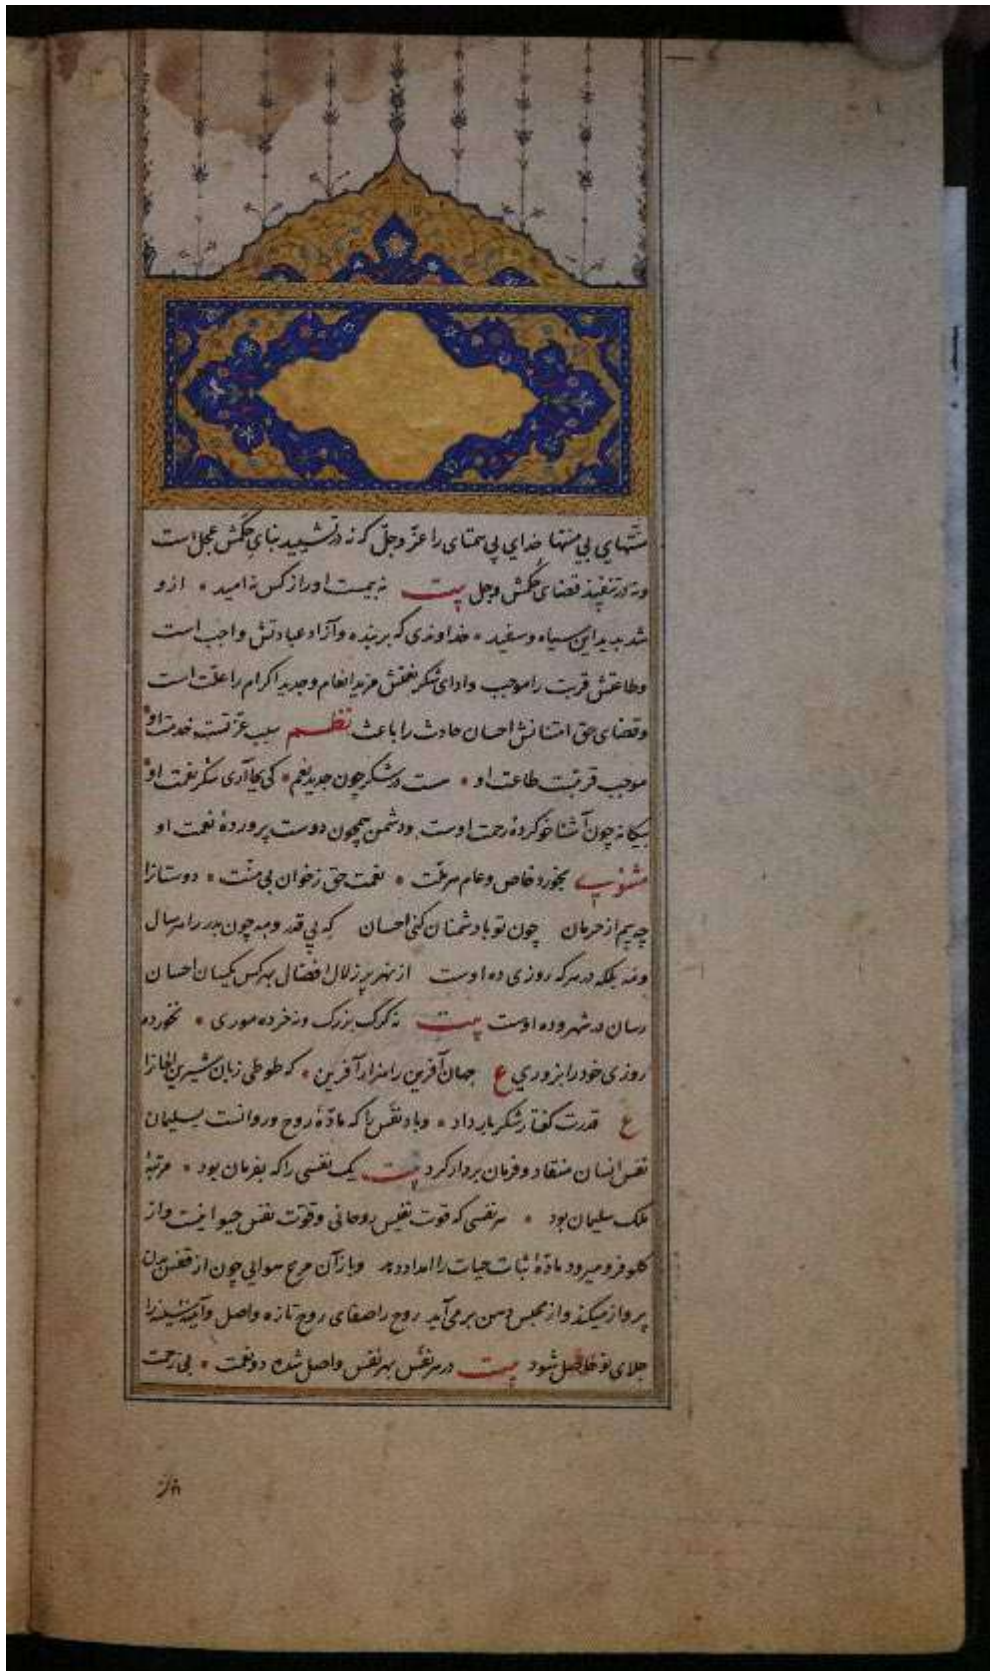 منتهای بی منتها خدای بی همتای را عزّ و جلّ که نه در تشیید بنای حکمش عجل است
و نه در تنفیذ قضای حکمش وجل بیت نه بیمست او را ز کس نه امید ازو
شد پدید این سیاه و سفید خداوندی که بر بنده و آزاد عبادتش واجب است
و طاعتش قربت را موجب و ادای شکر نعمتش مزید انعام و جدید اکرام را علّت است
و قضای حق امتنانش احسان حادث را باعث نظم سبب عزّتست خدمت او
موجب قربتست طاعت او هست در شکر چون جدید نعم کی بجا آری شکر نعمت او
بیکانه چون آشنا خو کردهٔ رحمت اوست و دشمن همچون دوست پروردهٔ نعمت او
مثنوی بخورد خاص و عام هر ملّت نعمت حق ز خوان بی منّت دوستانرا
چه بیم از حرمان چون تو با دشمنان کنی احسان که بی قدر و مه چون بدر را هر سال
و مه بلکه در هر که روزی ده اوست از نهر پر زلال افضال بهر کس یکسان احسان
رسان در شهر و ده اوست بیت نه کرک بزرک و نه خرده موری نخورده
روزی خود را بزوری ع جهان آفرین را هزار آفرین که طوطی زبان شیرین الحانرا
ع قدرت کفتار شکربار داد و باد نفس را که مادّهٔ روح و روانست سلیمان
نفس انسان منقاد و فرمان بردار کرد بیت یک نفسی را که بفرمان بود مرتبهٔ
ملک سلیمان بود هر نفسی که قوت نفیس روحانی و قوّت نفس حیوانیست و از
کلو فرو میرود مادّهٔ ثبات حیات را امداد دهد و باز آن مرغ هوایی چون از قفس بدن
پرواز میکند و از محبس دهن بر می آید روح را صفای روح تازه واصل و آینهٔ سینه را
جلای نو حاصل شود بیت در هر نفس بهر نفس واصل شده دو نعمت بی زحمت